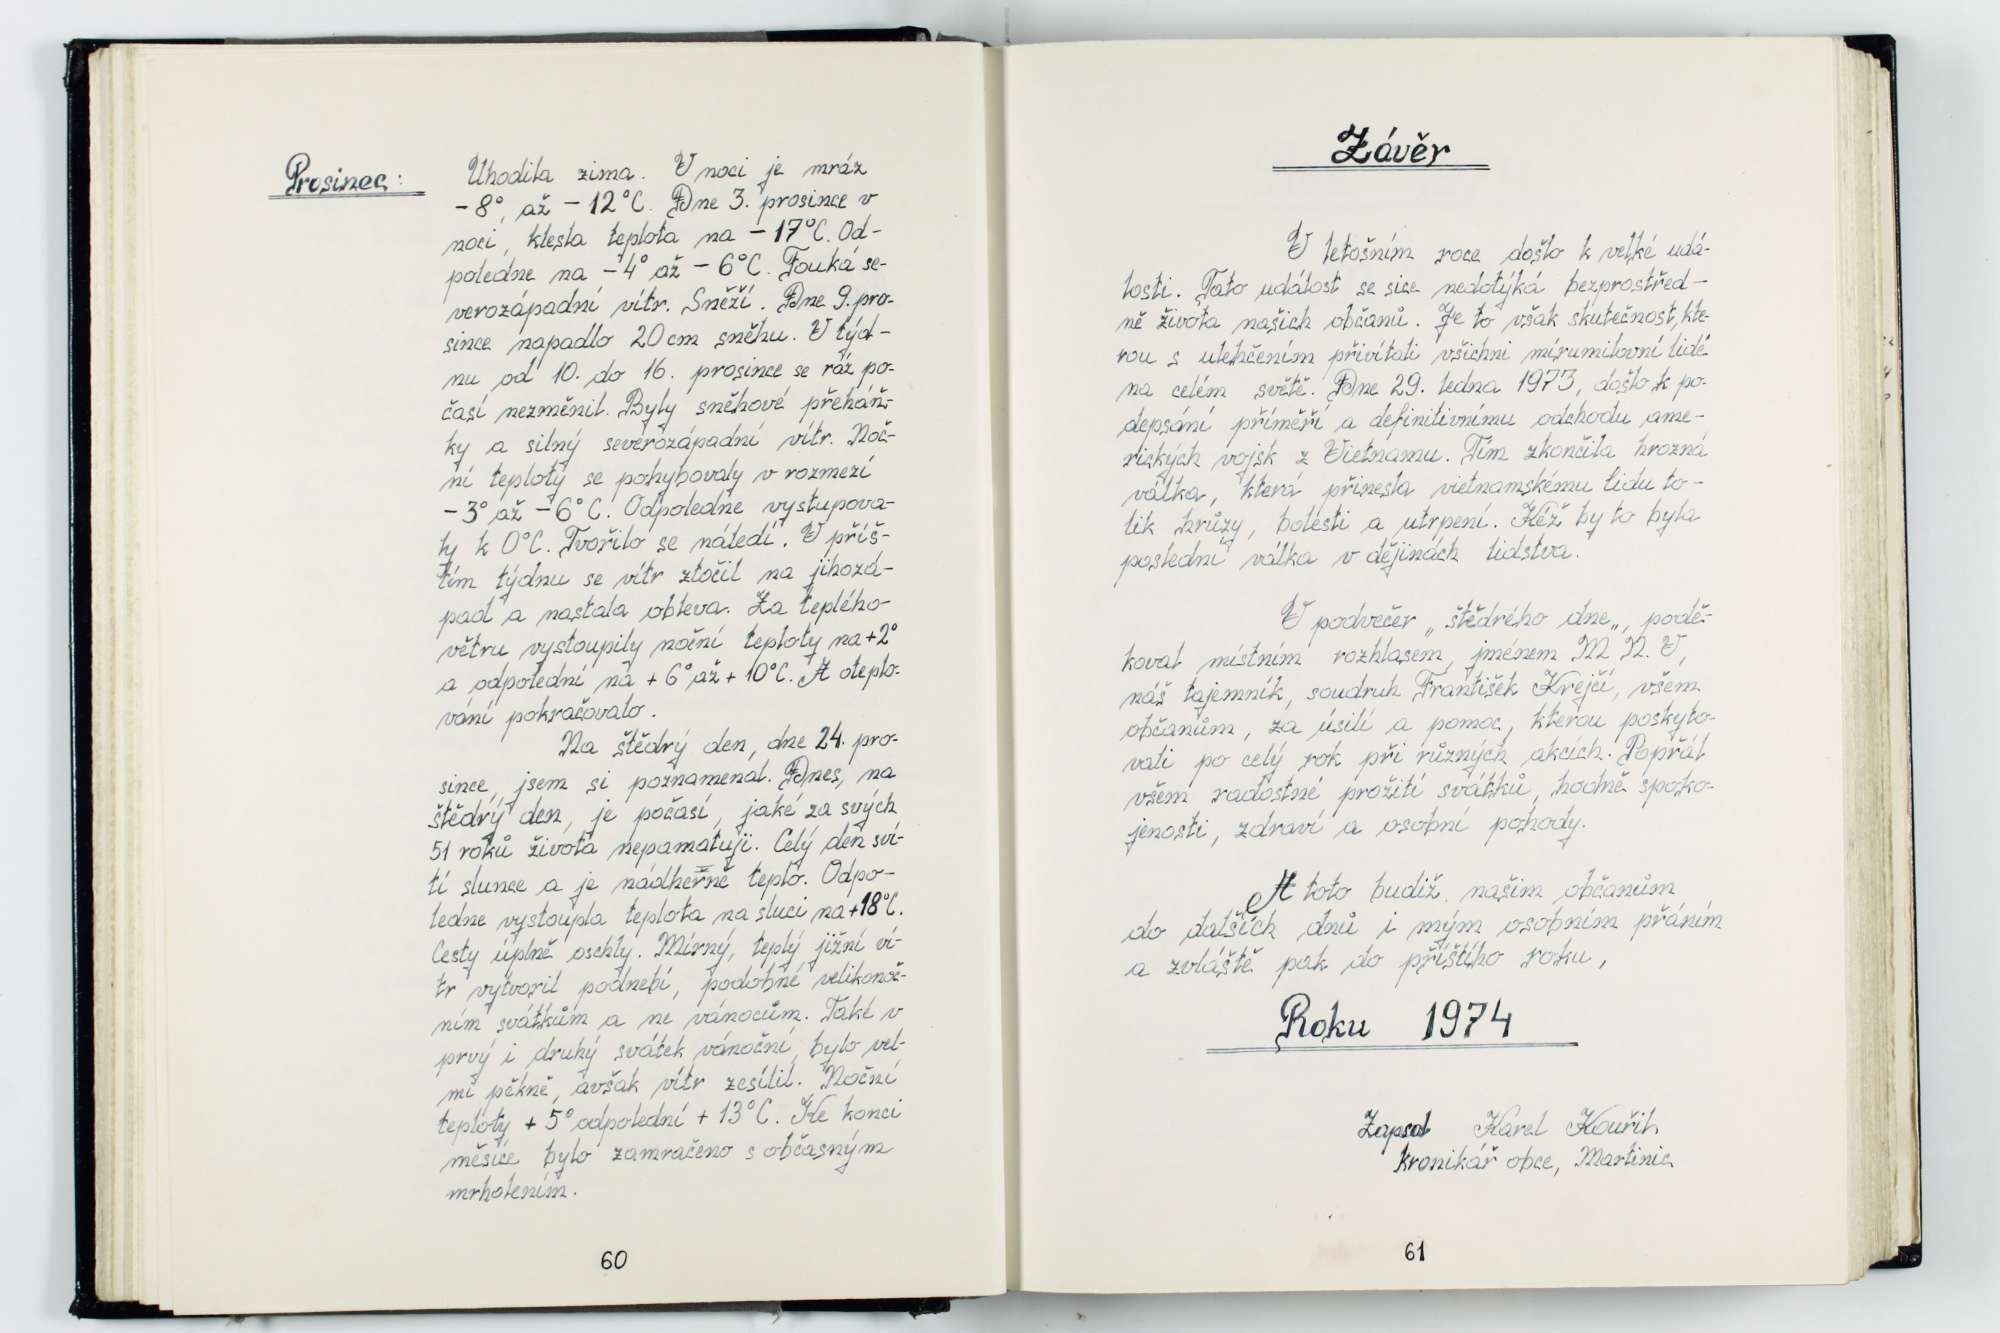 Prosinec:
Uhodila zima. V noci je mráz
-8°, až -12°C. Dne 3. prosince v
noci, klesla teplota na -17°C. Od-
poledne na -4° až -6°C. Fouká se-
verozápadní vítr. Sněží. Dne 9. pro-
since napadlo 20 cm sněhu. V týd-
nu od 10. do 16. prosince se ráz po-
časí nezměnil. Byly sněhové přeháň-
ky a silný severozápadní vítr. Noč-
ní teploty se pohybovaly v rozmezí
-3° až -6°C. Odpoledne vystupova-
ly k 0°C. Tvořilo se náledí. V příš-
tím týdnu se vítr ztočil na jihozá-
pad a nastala obleva. Za teplého
větru vystoupily noční teploty na +2°
a odpolední na +6° až +10°C. A oteplo-
vání pokračovalo.
Na štědrý den, dne 24. pro-
since, jsem si poznamenal. Dnes, na
štědrý den, je počasí, jaké za svých
51 roků života nepamatuji. Celý den sví-
tí slunce a je nádherně teplo. Odpo-
ledne vystoupla teplota na sluci na +18°C.
Cesty úplně oschly. Mírný, teplý jižní ví-
tr vytvoril podnebí, podobné velikonoč-
ním svátkům a ne vánocům. Také v
prvý i druhý svátek vánoční, bylo vel-
mi pěkně, avšak vítr zesílil. Noční
teploty +5° odpolední +13°C. Ke konci
měsíce bylo zamračeno s občasným
mrholením.
60
Závěr
V letošním roce došlo k velké udá-
losti. Tato událost se sice nedotýká bezprostřed-
ně života našich občanů. Je to však skutečnost, kte-
rou s ulehčením přivítali všichni mírumilovní lidé
na celém světě. Dne 29. ledna 1973, došlo k po-
depsání příměří a definitivnímu odchodu ame-
rických vojsk z Vietnamu. Tím zkončila hrozná
válka, která přinesla vietnamskému lidu to-
lik hrůzy, bolesti a utrpení. Kéž by to byla
poslední válka v dějinách lidstva.
V podvečer „štědrého dne„, podě-
koval místním rozhlasem, jménem M.N.V,
náš tajemník, soudruh František Krejčí, všem
občanům, za úsilí a pomoc, kterou poskyto-
vali po celý rok při různých akcích. Popřál
všem radostné prožití svátků, hodně spoko-
jenosti, zdraví a osobní pohody.
A toto budiž našim občanům
do dalších dnů i mým osobním přáním
a zvláště pak do příštího roku,
Roku 1974
Zapsal Karel Kouřil,
kronikář obce, Martinic
61